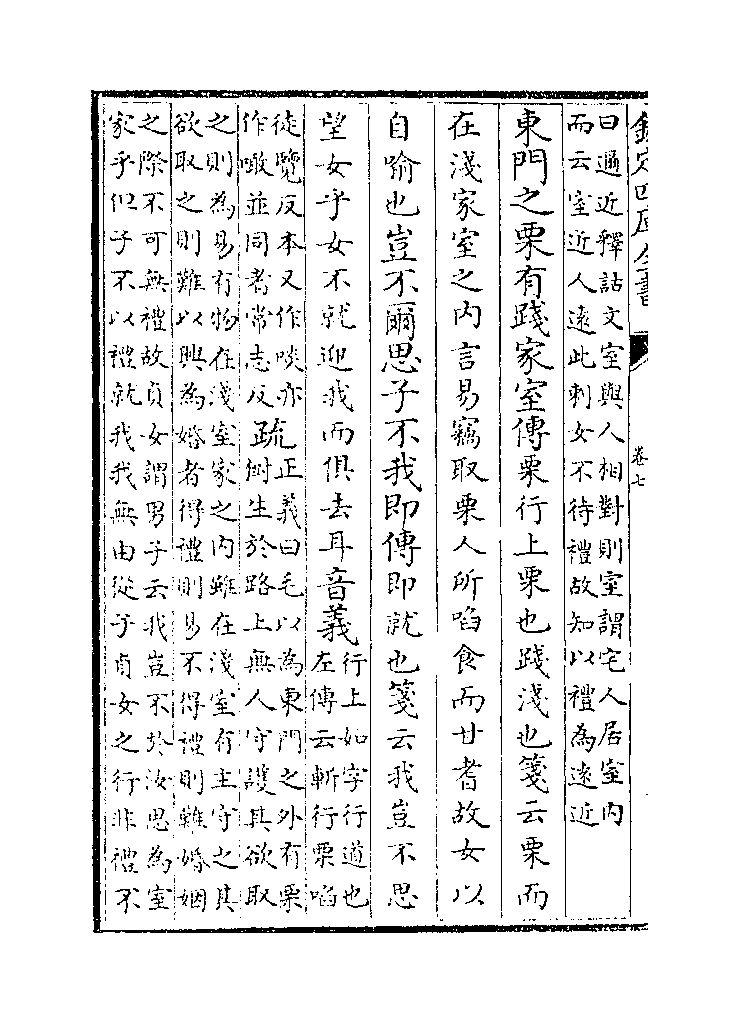 欽定四庫全書
卷七
曰邇近釋詁文室與人相對則室謂宅人居室内
而云室近人遠此刺女不待禮故知以禮為遠近
東門之栗有踐家室傳栗行上栗也踐淺也箋云栗而
在淺家室之内言易竊取栗人所啗食而甘耆故女以
自喻也豈不爾思子不我即傳即就也箋云我豈不思
望女乎女不就迎我而俱去耳音義
行上如字行道也
左傳云斬行栗啗
徒覽反本又作啖亦
作噉並同耆常志反
疏
正義曰毛以為東門之外有栗
樹生於路上無人守護其欲取
之則為易有物在淺室家之内雖在淺室有主守之其
欲取之則難以興為婚者得禮則易不得禮則難婚姻
之際不可無禮故貞女謂男子云我豈不於汝思為室
家乎但子不以禮就我我無由從子貞女之行非禮不